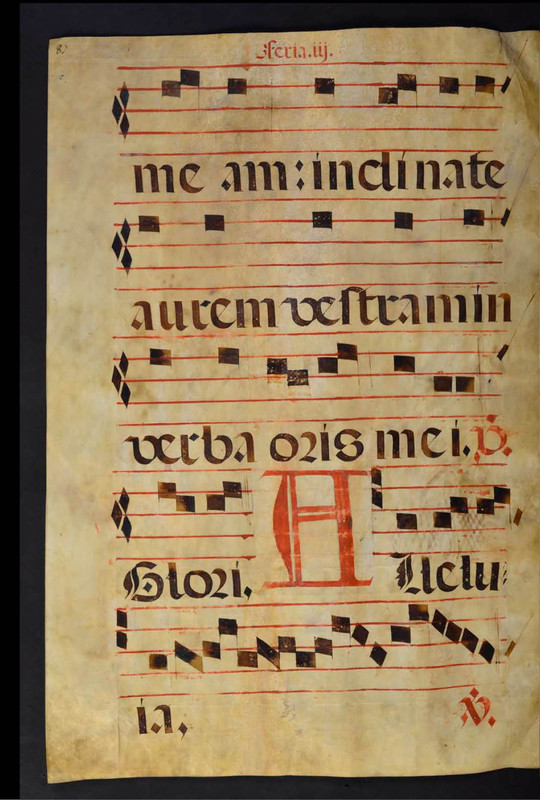 Feria.iij.
me am: inclinate
aurem vestram in
verba oris mei. V.
Glori, A llelu
ia, V.